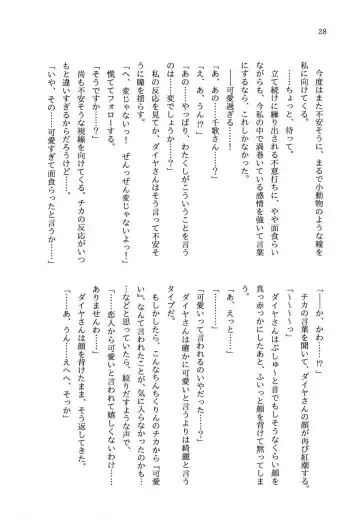 28
今度はまた不安そうに、まるで小動物のような瞳を
私に向けてくる。
――ちょっと、待って。
立て続けに繰り出される不意打ちに、やや面食らい
ながらも、今私の中で渦巻いている感情を強いて言葉
にするなら、これしかなかった。
――可愛過ぎる――！
「あ、あの……千歌さん……？」
「え、あ、うん!?」
「あの……やっぱり、わたくしがこういうことを言う
のは……変でしょうか……？」
私の反応を見てか、ダイヤさんはそう言って不安そ
うに瞳を揺らす。
「へ、変じゃないっ！　ぜんっぜん変じゃないよっ！」
慌ててフォローする。
「そうですか……？」
尚も不安そうな視線を向けてくる。チカの反応がいつ
もと違いすぎるからだろうけど……。
「いや、その……可愛すぎて面食らったと言うか……」
「――か、かわ……!?」
チカの言葉を聞いて、ダイヤさんの顔が再び紅潮する。
「～～～～っ」
ダイヤさんはぷしゅ～と音でもしそうなくらい顔を
真っ赤っかにしたあと、ふいっと顔を背けて黙ってしま
う。
「あ、えっと……」
「…………」
「可愛いって言われるのいやだった……？」
ダイヤさんは確かに可愛いと言うよりは綺麗と言う
タイプだ。
もしかしたら、こんなちんちくりんのチカから『可愛
い』なんて言われたことが、気に入らなかったのかも…
…などと思っていたら、絞りだすような声で、
「……恋人から可愛いと言われて嬉しくないわけ……
ありませんわ……」
ダイヤさんは顔を背けたまま、そう返してきた。
「……あ、うん……えへへ、そっか」